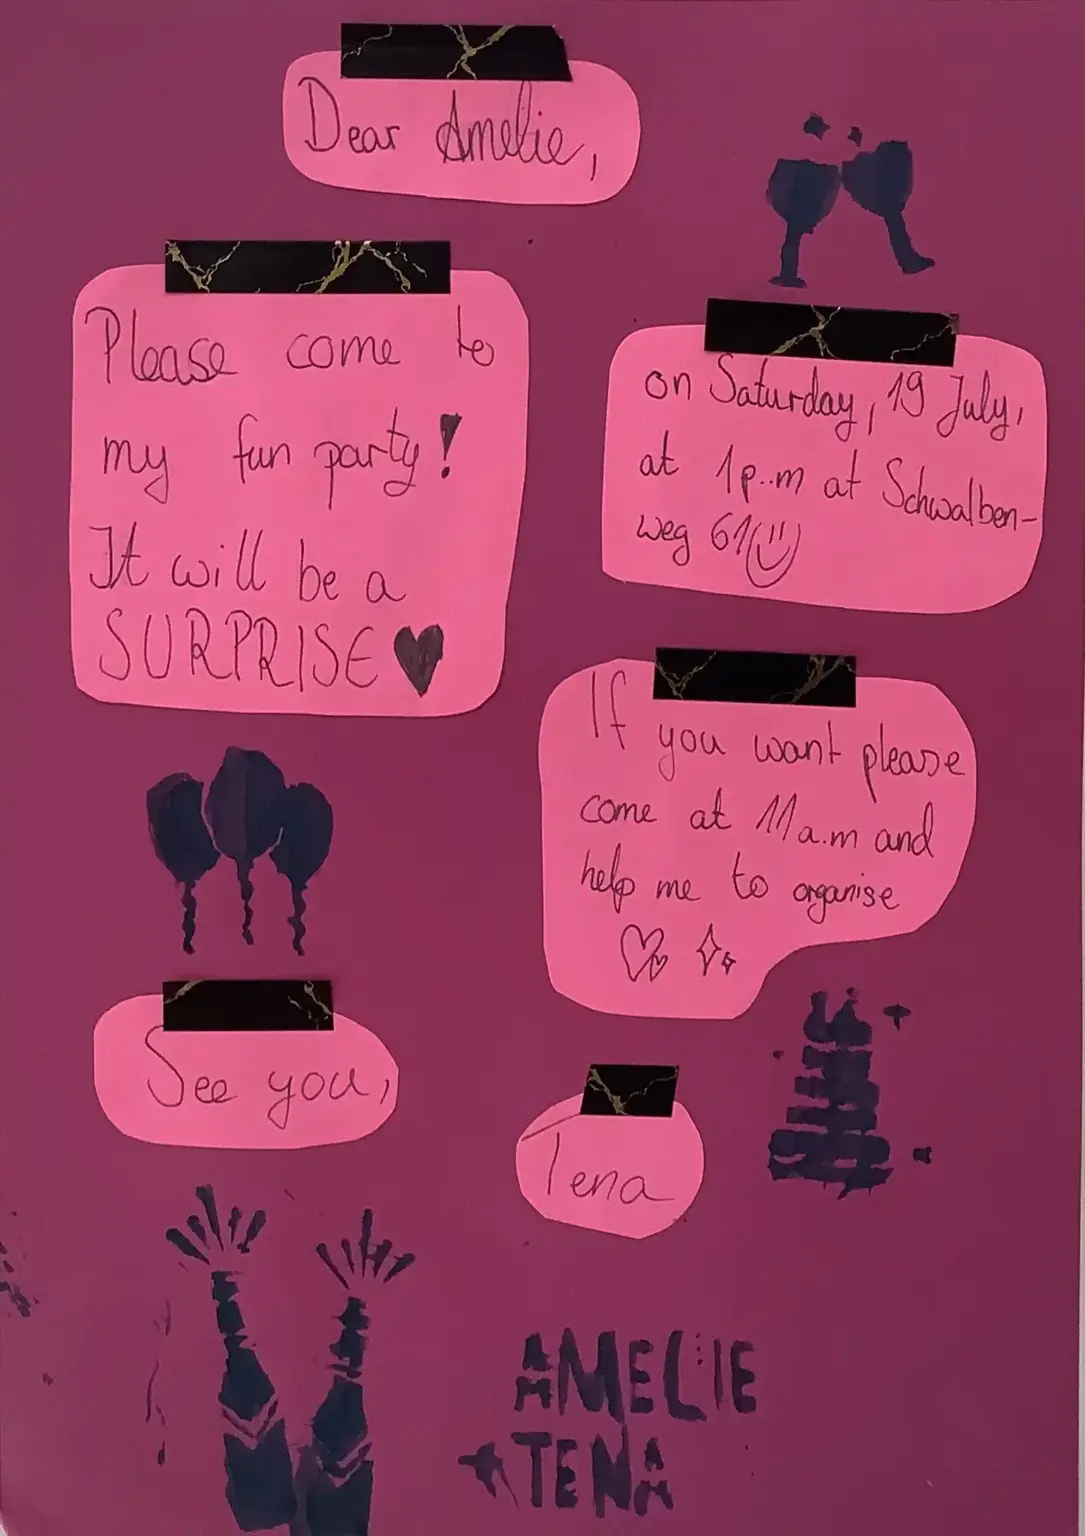 Dear Amelie,
Please come to
my fun party!
It will be a
SURPRISE
on Saturday, 19 July,
at 1p..m at Schwalben-
weg 61
If you want please
come at 11a.m and
help me to organise
See you,
Tena
AMELIE
TENA